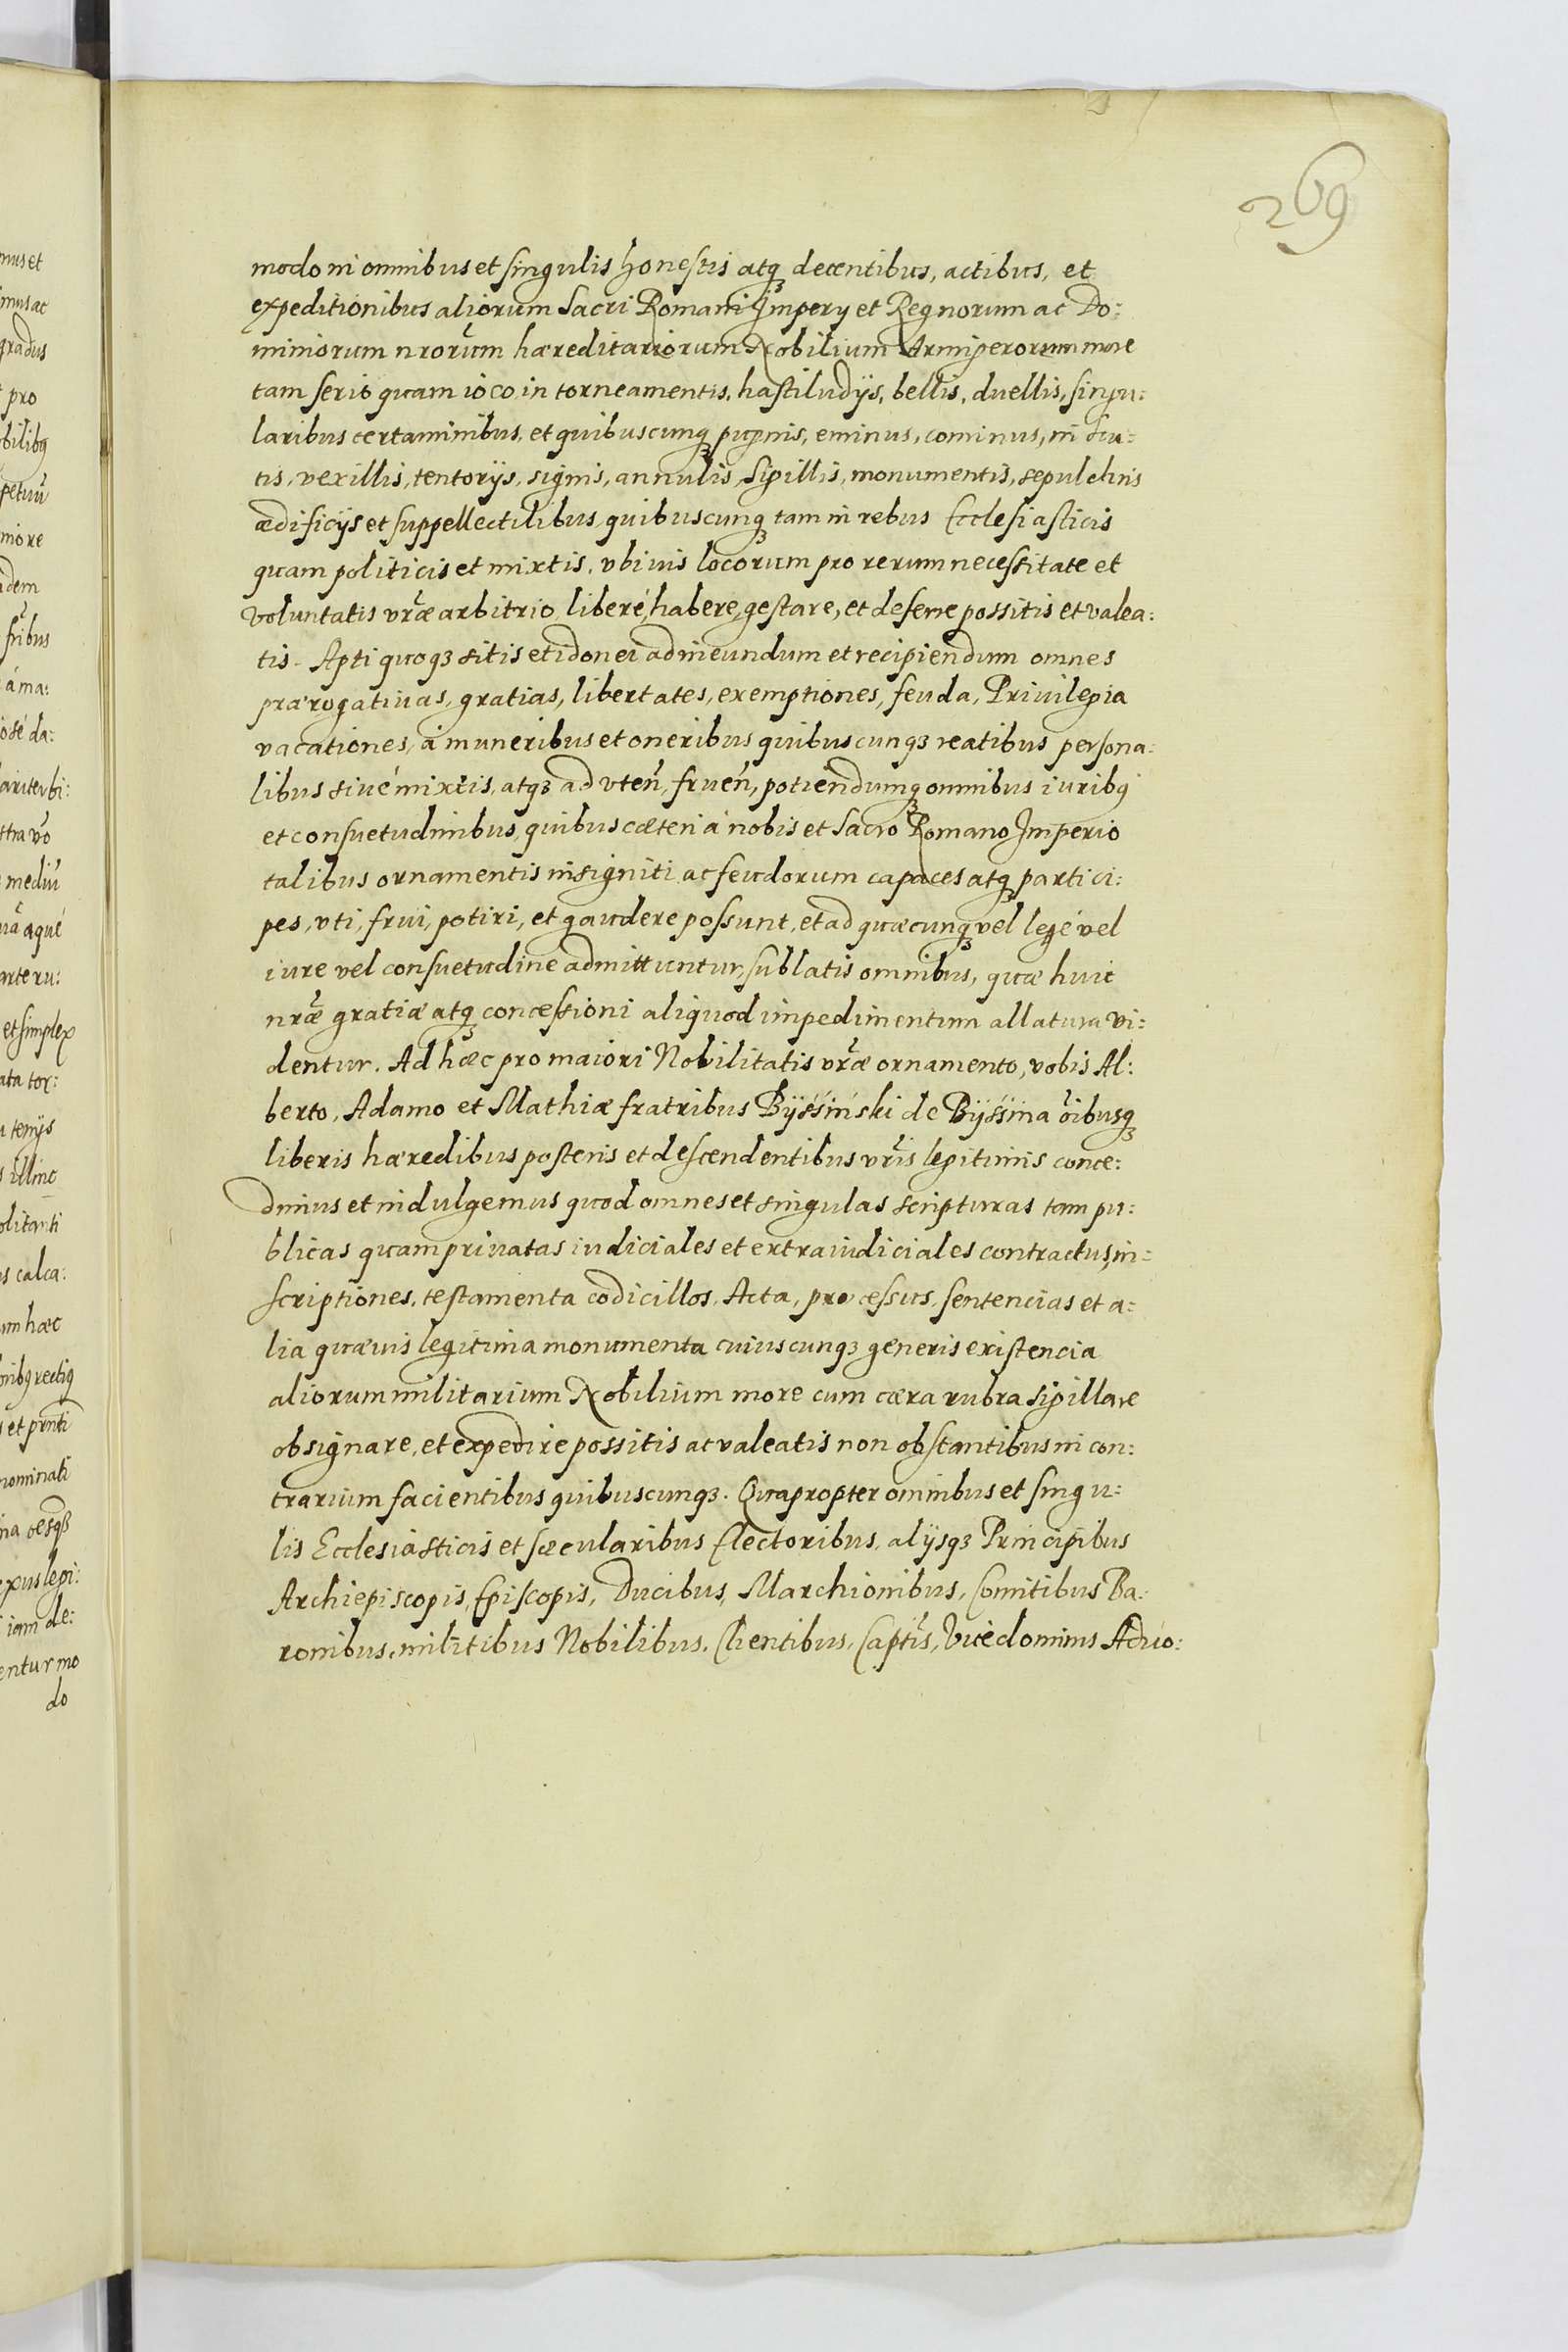 269
modo in omnibus et singulis honestis atq₃ decentibus, actibus, et
expeditionibus aliorum Sacri Romani Impery et Regnorum ac Do:
miniorum nrorum hæreditariorum Nobilium Armigerorum more
tam serio quam ioco in torneamentis, hastiludijs, bellis, duellis, singu:
laribus certaminibus, et quibuscunq₃ pugnis, eminus, cominus, in scu:
tis, vexillis, tentorijs, signis, annulis, Sigillis, monumentis, sepulchris
ædificijs et suppellectilibus quibuscunq₃ tam in rebus Ecclesiasticis
quam politicis et mixtis, vbiuis locorum pro rerum necessitate et
voluntatis vræ arbitrio liberé, habere, gestare, et deferre possitis et valea:
tis. Apti quoq₃ sitis et idonei ad ineundum et recipiendum omnes
prærogatiuas, gratias, libertates, exemptiones, feuda, Priuilegia
vacationes, á muneribus et oneribus quibuscunq₃ reatibus persona:
libus siué mixtis, atq₃ ad vten, fruen, potiendumq₃ omnibus iurib9
et consuetudinibus, quibus cæteri á nobis et Sacro Romano Imperio
talibus ornamentis insigniti ac feudorum capaces atq₃ partici:
pes, vti, frui, potiri, et gaudere possunt, et ad quæcunq₃ vel legé vel
iure vel consuetudine admittuntur, sublatis omnibus, quæ huic
nræ gratiæ atq₃ concessioni aliquod impedimentum allatura vi:
dentur. Ad hæc pro maiori Nobilitatis vræ ornamento, vobis Al:
berto, Adamo et Mathiæ fratribus Byśśiński de Byśśina oibusq₃
liberis hæredibus posteris et descendentibus vris legitimis conce:
dimus et indulgemus quod omnes et singulas scripturas tam pu:
blicas quam priuatas iudiciales et extraiudiciales contractus, in:
scriptiones, testamenta codicillos, Acta, processus, sentencias et a:
lia quæuis legitima monumenta cuiuscunq₃ generis existencia
aliorum militarium Nobilium more cum cæra rubra sigillare
obsignare, et expedire possitis ac valeatis non obstantibus in con:
trarium facientibus quibuscunq₃. Quapropter omnibus et singu:
lis Ecclesiasticis et sæcularibus Electoribus, alijsq₃ Principibus
Archiepiscopis, Episcopis, Ducibus, Marchionibus, Comitibus Ba:
ronibus, militibus Nobilibus, Clientibus, Captis, Vicedominis Aduo: